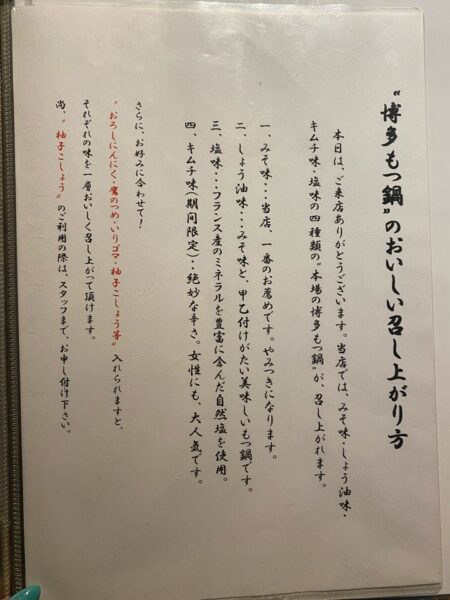 “博多もつ鍋”のおいしい召し上がり方
本日は、ご来店ありがとうございます。当店では、みそ味・しょう油味・
キムチ味・塩味の四種類の“本場の博多もつ鍋”が、召し上がれます。
一、みそ味・・・当店、一番のお薦めです。やみつきになります。
二、しょう油味・・・みそ味と、甲乙付けがたい美味しいもつ鍋です。
三、塩味・・・フランス産のミネラルを豊富に含んだ自然塩を使用。
四、キムチ味(期間限定)・・絶妙な辛さ。女性にも、大人気です。
さらに、お好みに合わせて！
“おろしにんにく・鷹のつめ・いりゴマ・柚子こしょう等”入れられますと、
それぞれの味を一層おいしく召し上がって頂けます。
尚、“柚子こしょう”のご利用の際は、スタッフまで、お申し付け下さい。